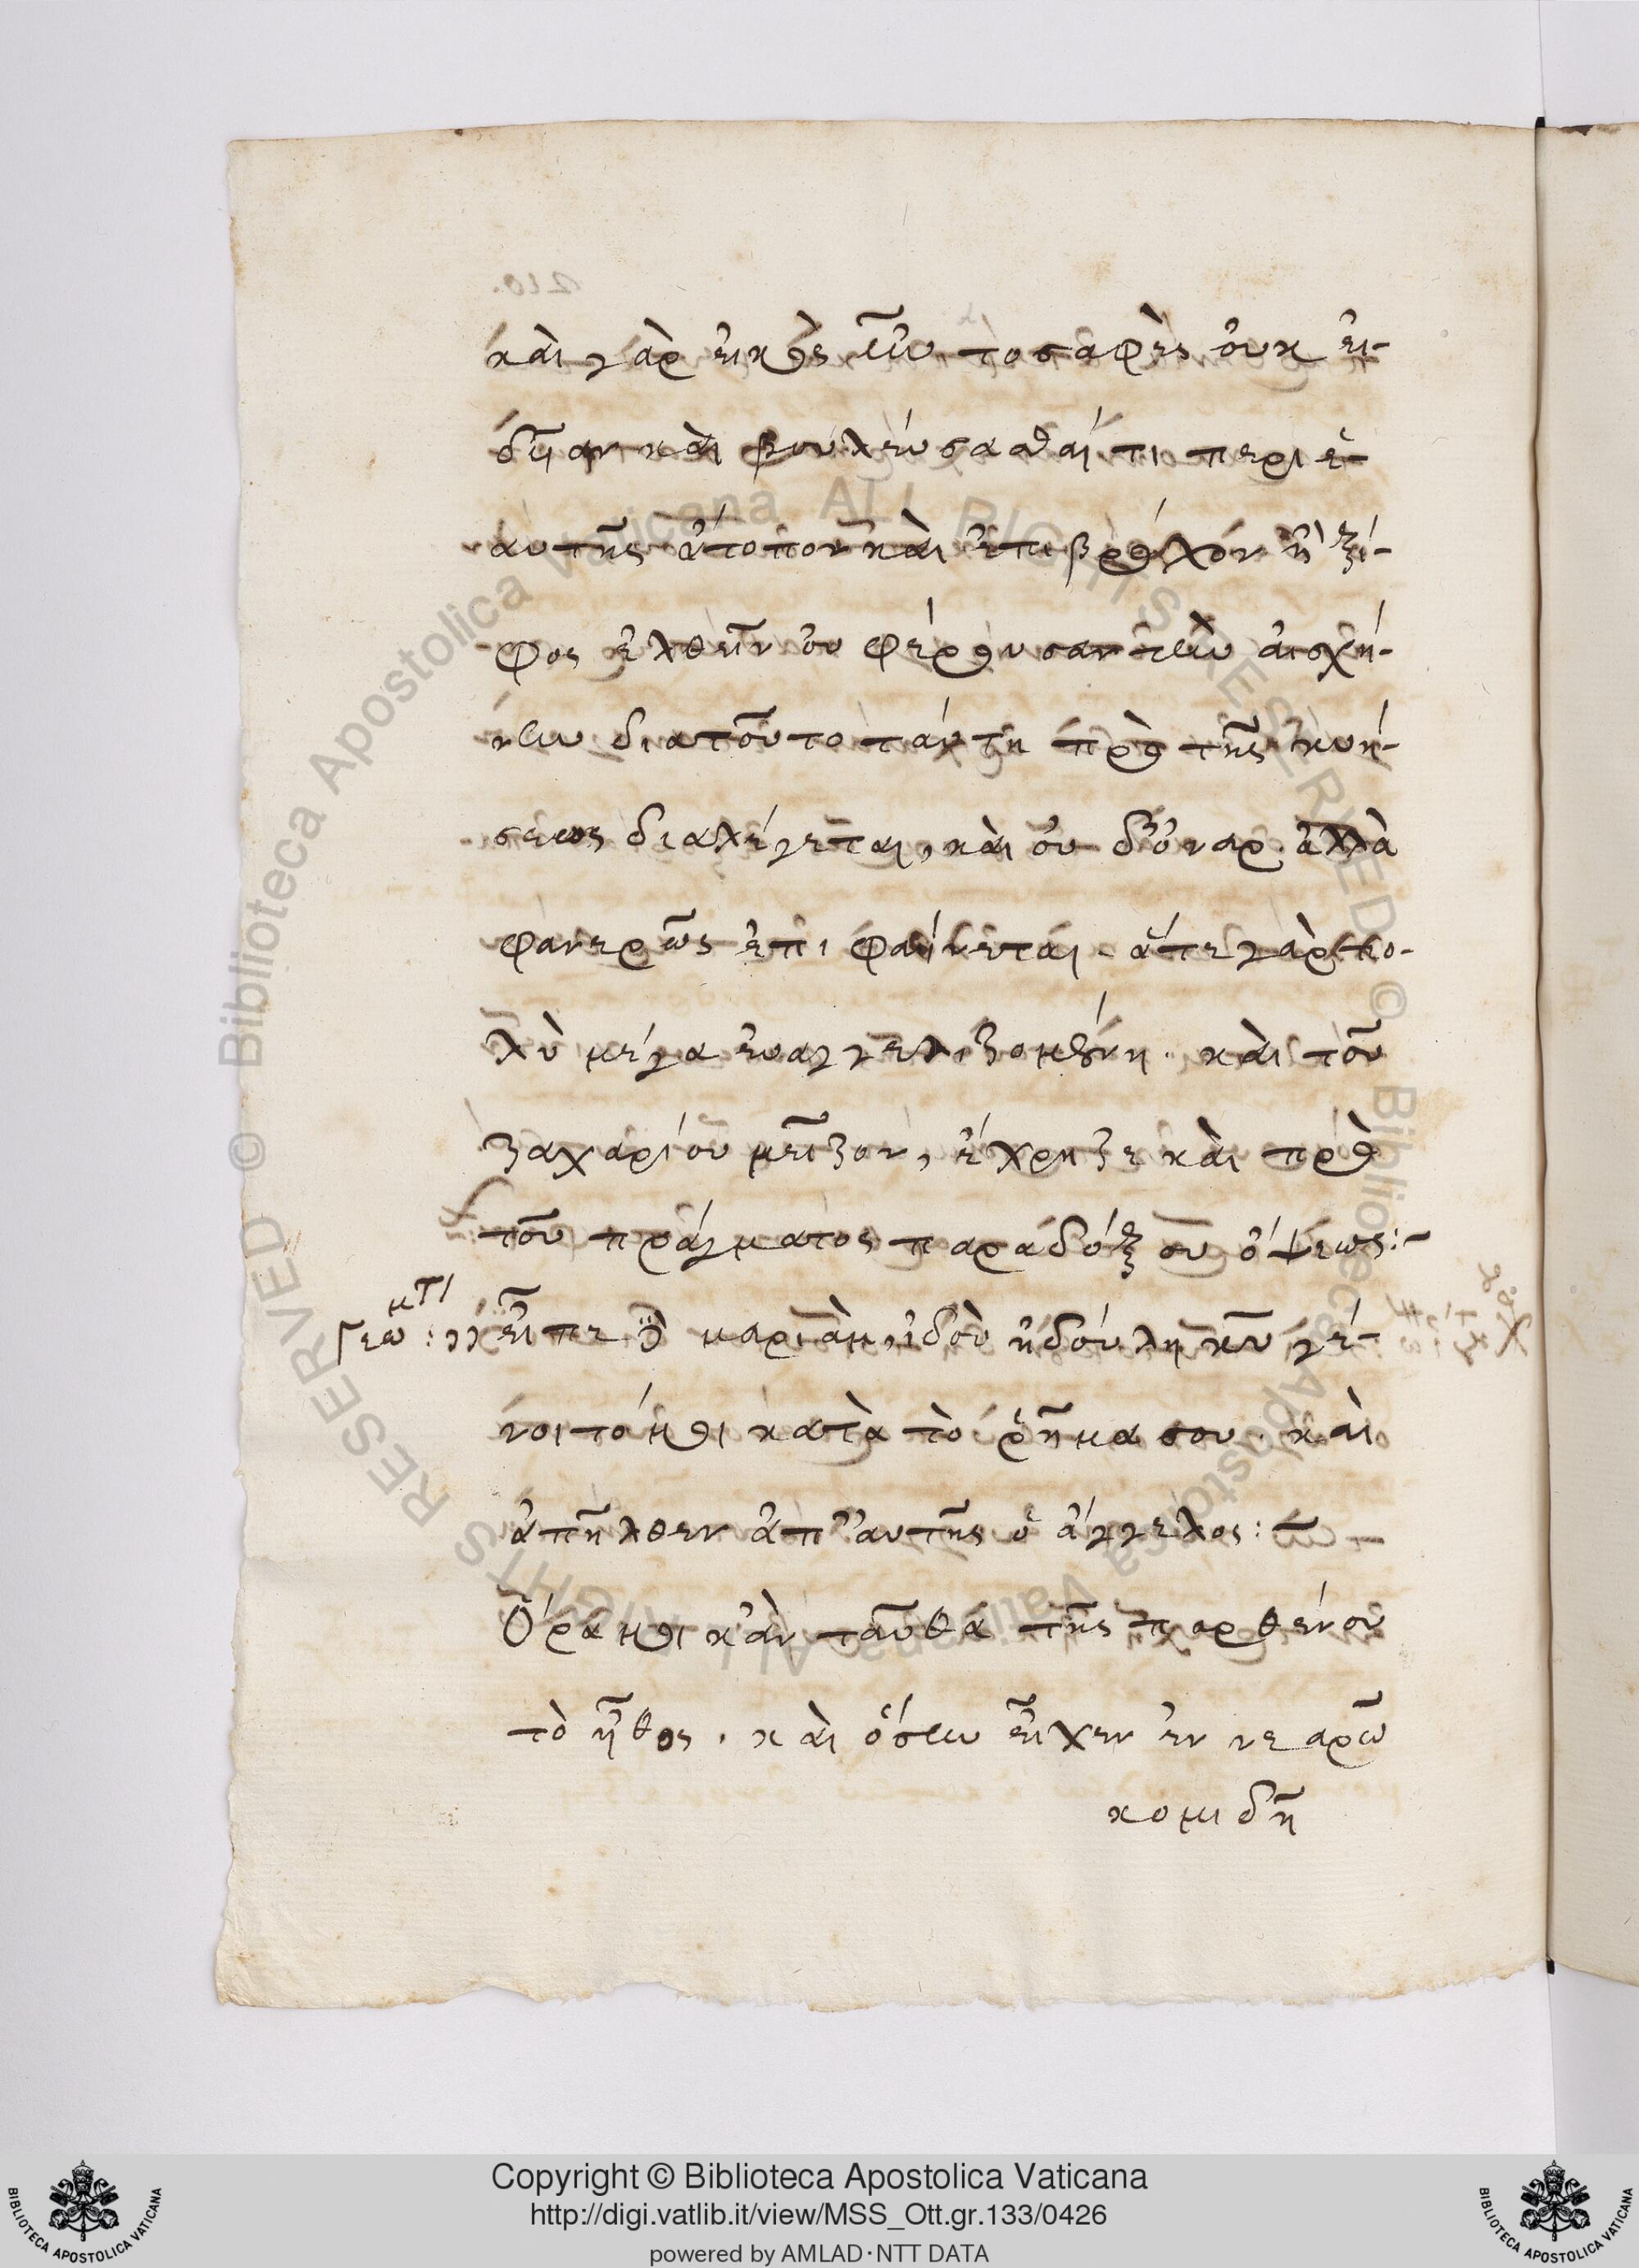 κὰι γὰρ ἐικὸς ἦν τὸ σαφὲς ὀυκ ἐι-
δῆαν κὰι βουλεύσασθαί τι περὶ ἑ-
αυτῆς ἄτοπον κὰι ἐπὶ βρόχον ἢ ξί-
φος ἐλθεῖν ὀυ φέρουσαν τὴν ἀισχύ-
νην διατοῦτο ταύτη πρὸ τῆς κυή-
σεως διαλέγεται, κὰι ὀυ δ' ὄναρ ἀλλὰ
φανερῶς ἐπιφαίνεται. ἅτε γὰρ πο-
λὺ μέγα ἐυαγγελιζομένη. κὰι τοῦ
ζαχαρίου μεῖζον, ἔχρηζε κὰι πρὸ
τοῦ πράγματος παραδόξου ὄψεως:-
Γεω μτ :,, εἶπε δὲ μαριὰμ, ἰδοὺ ἡ δούλη κυ γέ-
νοιτό μοι κατὰ τὸ ῥῆμα σου. κὰι
ἀπῆλθεν ἀπ' ἀυτῆς ὁ ἄγγελος:-
Ὅρα μοι κἀνταῦθα τῆς παρθένου
τὸ ἦθος. κὰι ὅσην εἶχεν ἐν νεαρῶ
κομιδῆ
Copyright © Biblioteca Apostolica Vaticana
http://digi.vatlib.it/view/MSS_Ott.gr.133/0426
powered by AMLAD·NTT DATA
BIBLIOTECA APOSTOLICA VATICANA
BIBLIOTECA APOSTOLICA VATICANA
© Biblioteca Apostolica Vaticana ALL RIGHTS RESERVED
© Biblioteca Apostolica Vaticana ALL RIGHTS RESERVED